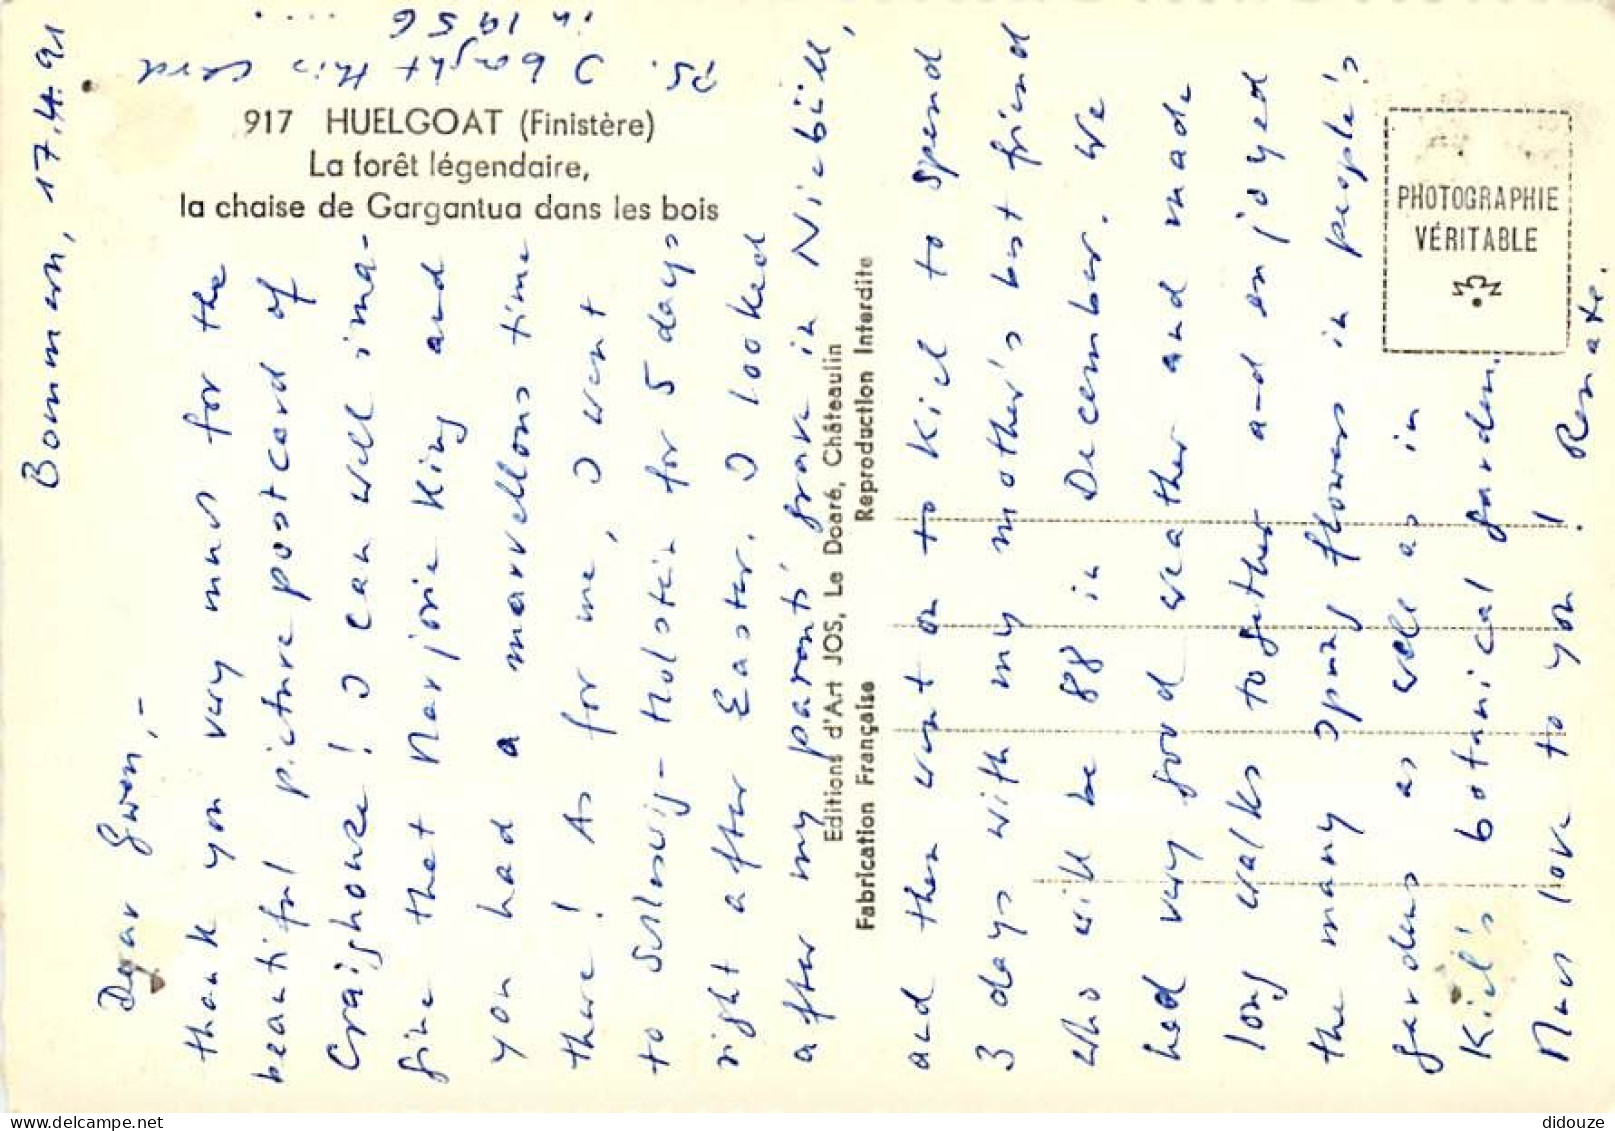 Bommern, 17.4.91
Dear Gwen,-
thank you very much for the
beautiful picture postcard of
Craighouse! I can well ima-
gine that Marjorie King and
you had a marvellous time
there! As for me, I went
to Schleswig-Holstein for 5 days
right after Easter. I looked
after my parents' grave in Niebüll,
and then went on to Kiel to spend
3 days with my mother's best friend
who will be 88 in December. We
had very good weather and made
long walks together and enjoyed
the many spring flowers in people's
gardens as well as in
Kiel's botanical garden.
Much love to you! Renate.
PS. I bought this card
in 1956 ....
917 HUELGOAT (Finistère)
La forêt légendaire,
la chaise de Gargantua dans les bois
Editions d'Art JOS, Le Doaré, Châteaulin
Fabrication Française Reproduction Interdite
PHOTOGRAPHIE
VÉRITABLE
didouze